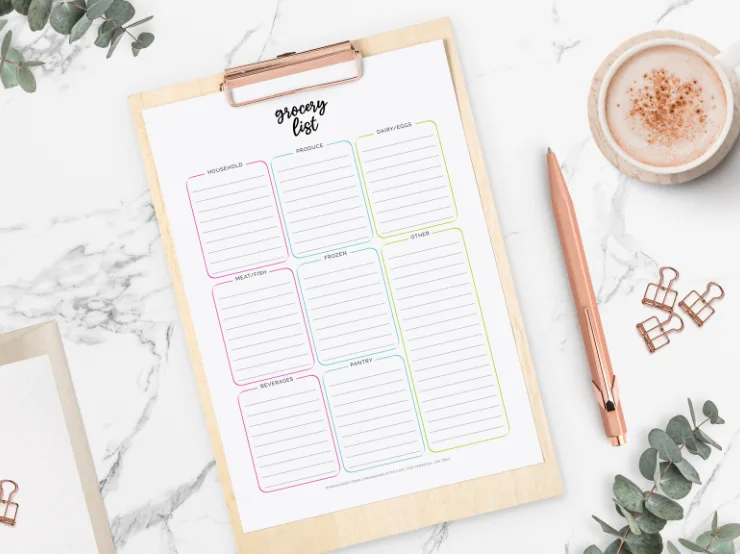 grocery
list
HOUSEHOLD
PRODUCE
DAIRY/EGGS
MEAT/FISH
FROZEN
OTHER
BEVERAGES
PANTRY